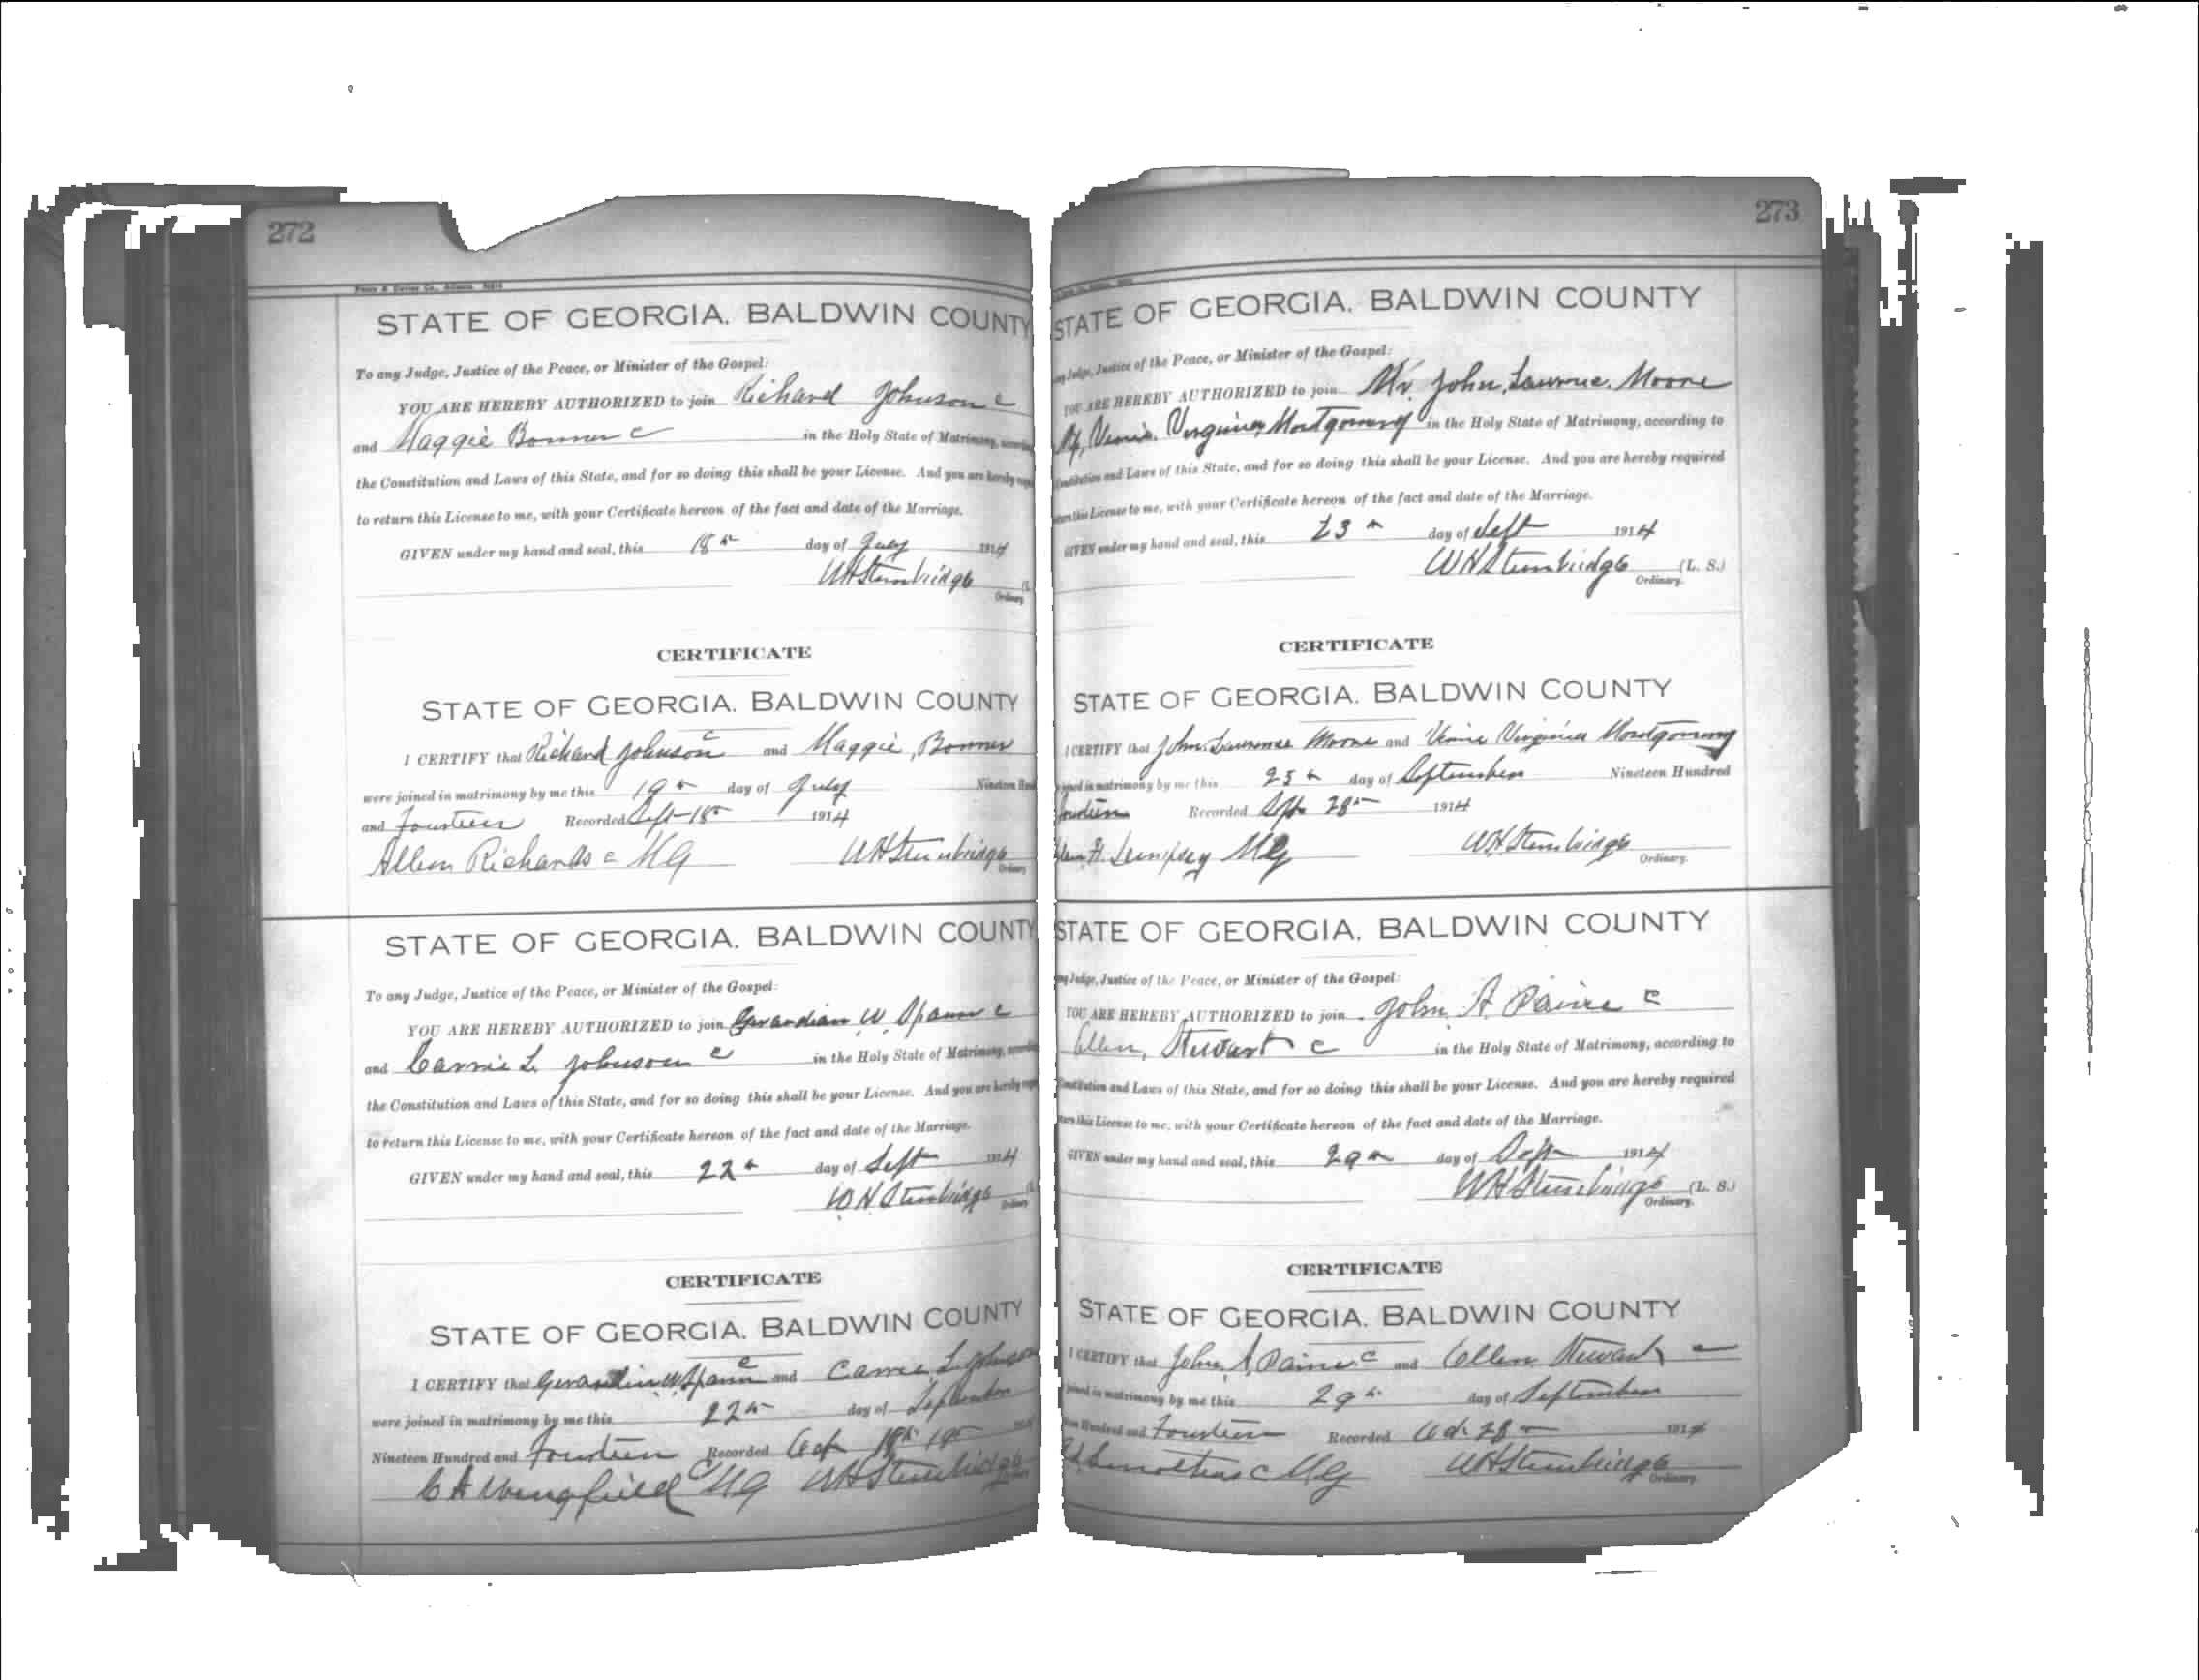 272
STATE OF GEORGIA. BALDWIN COUNTY
To any Judge, Justice of the Peace, or Minister of the Gospel:
YOU ARE HEREBY AUTHORIZED to join Richard Johnson c
and Maggie Bonner c in the Holy State of Matrimony,
the Constitution and Laws of this State, and for so doing this shall be your License. And you are hereby
to return this License to me, with your Certificate hereon of the fact and date of the Marriage.
GIVEN under my hand and seal, this 18th day of July 1914
WH Stembridge
Ordinary
CERTIFICATE
STATE OF GEORGIA. BALDWIN COUNTY
I CERTIFY that Richard Johnson c and Maggie Bonner
were joined in matrimony by me this 19th day of July Nineteen
and Fourteen Recorded Sept 18th 1914
Allen Richards c MG WH Stembridge
Ordinary
STATE OF GEORGIA. BALDWIN COUNTY
To any Judge, Justice of the Peace, or Minister of the Gospel:
YOU ARE HEREBY AUTHORIZED to join W Spann c
and Carrie L. Johnson c in the Holy State of Matrimony,
the Constitution and Laws of this State, and for so doing this shall be your License. And you are hereby
to return this License to me, with your Certificate hereon of the fact and date of the Marriage.
GIVEN under my hand and seal, this 22th day of Sept 1914
WH Stembridge
Ordinary
CERTIFICATE
STATE OF GEORGIA. BALDWIN COUNTY
I CERTIFY that W Spann c and Carrie L. Johnson
were joined in matrimony by me this 22th day of September
Nineteen Hundred and Fourteen Recorded Oct
C A Wingfield c MG WH Stembridge
273
STATE OF GEORGIA. BALDWIN COUNTY
Judge, Justice of the Peace, or Minister of the Gospel:
YOU ARE HEREBY AUTHORIZED to join Mr. John Lawrence Moore
Virginia Montgomery in the Holy State of Matrimony, according to
Constitution and Laws of this State, and for so doing this shall be your License. And you are hereby required
this License to me, with your Certificate hereon of the fact and date of the Marriage.
GIVEN under my hand and seal, this 23th day of Sept 1914
WH Stembridge (L. S.)
Ordinary.
CERTIFICATE
STATE OF GEORGIA. BALDWIN COUNTY
I CERTIFY that John Lawrence Moore and Virginia Montgomery
joined in matrimony by me this 25th day of September Nineteen Hundred
fourteen Recorded Sept 28th 1914
MG WH Stembridge
Ordinary.
STATE OF GEORGIA. BALDWIN COUNTY
Judge, Justice of the Peace, or Minister of the Gospel:
YOU ARE HEREBY AUTHORIZED to join John A. Paine c
Ellen Stewart c in the Holy State of Matrimony, according to
Constitution and Laws of this State, and for so doing this shall be your License. And you are hereby required
this License to me, with your Certificate hereon of the fact and date of the Marriage.
GIVEN under my hand and seal, this 29th day of Sept 1914
WH Stembridge (L. S.)
Ordinary.
CERTIFICATE
STATE OF GEORGIA. BALDWIN COUNTY
I CERTIFY that John A Paine c and Ellen Stewart
joined in matrimony by me this 29th day of September
Hundred and Fourteen Recorded Oct. 28th 1914
c MG WH Stembridge
Ordinary.